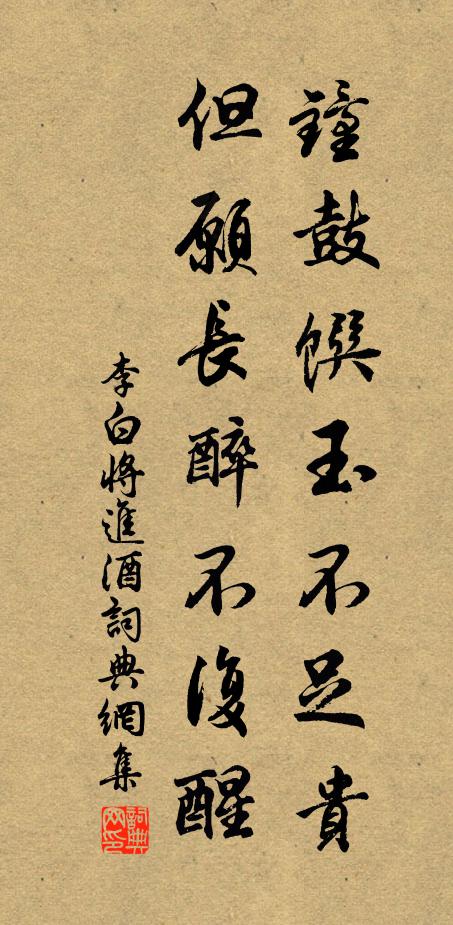 鐘鼓饌玉不足貴
但願長醉不復醒
李白將進酒詞典網集
詞典網印